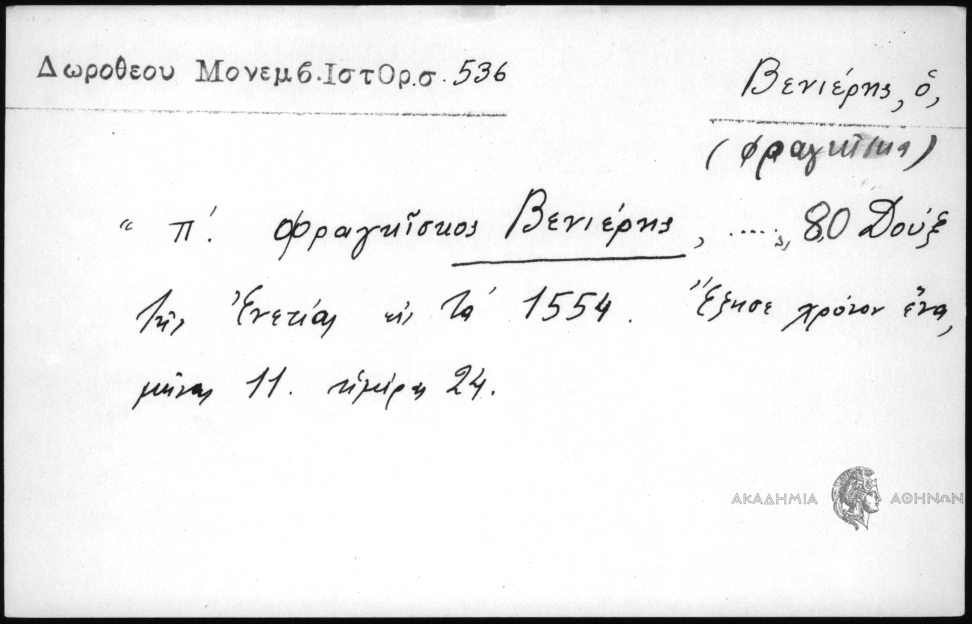 Δωροθεου Μονεμβ.ΙστΟρ.σ. 536
Βενιέρης, ὁ,
(Φραγκῖσκο)
“ π΄. Φραγκῖσκος Βενιέρης, ....., 80 Δούξ
τῆς Ἐνετίας εἰς τὰ 1554. Ἔζησε χρόνον ἕνα,
μῆνας 11. ἡμέρας 24.
ΑΚΑΔΗΜΙΑ ΑΘΗΝΩΝ